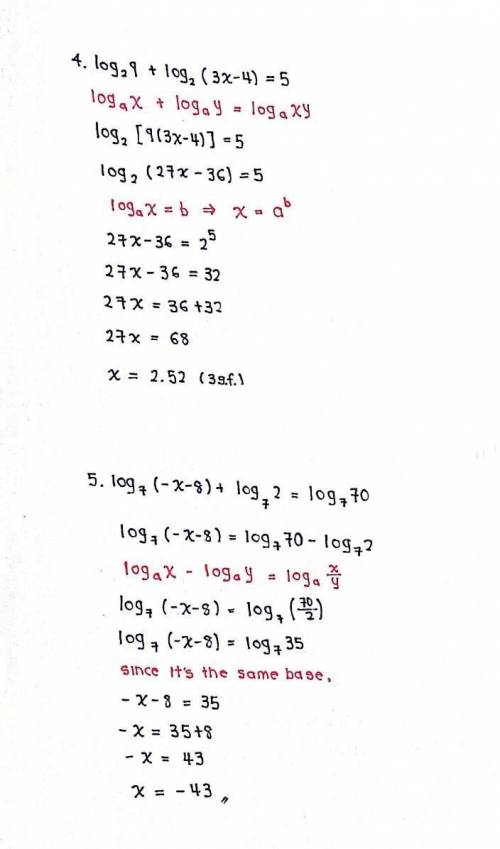 4. log₂9 + log₂(3x-4) = 5
logₐx + logₐy = logₐxy
log₂[9(3x-4)] = 5
log₂(27x-36) = 5
logₐx = b ⇒ x = aᵇ
27x-36 = 2⁵
27x-36 = 32
27x = 36+32
27x = 68
x = 2.52 (3s.f.)
5. log₇(-x-8) + log₇2 = log₇70
log₇(-x-8) = log₇70 - log₇2
logₐx - logₐy = logₐ x/y
log₇(-x-8) = log₇(70/2)
log₇(-x-8) = log₇35
since it's the same base,
-x-8 = 35
-x = 35+8
-x = 43
x = -43 〃